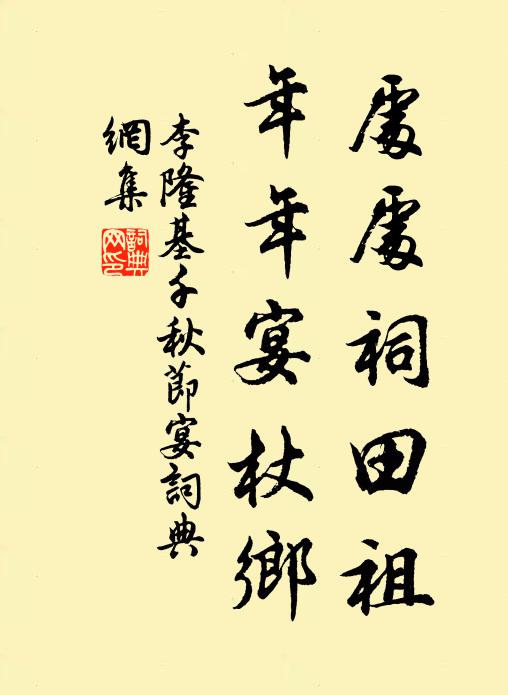 處處祠田祖
年年宴杖鄉
李隆基千秋節宴詞典
網集
詞典網印